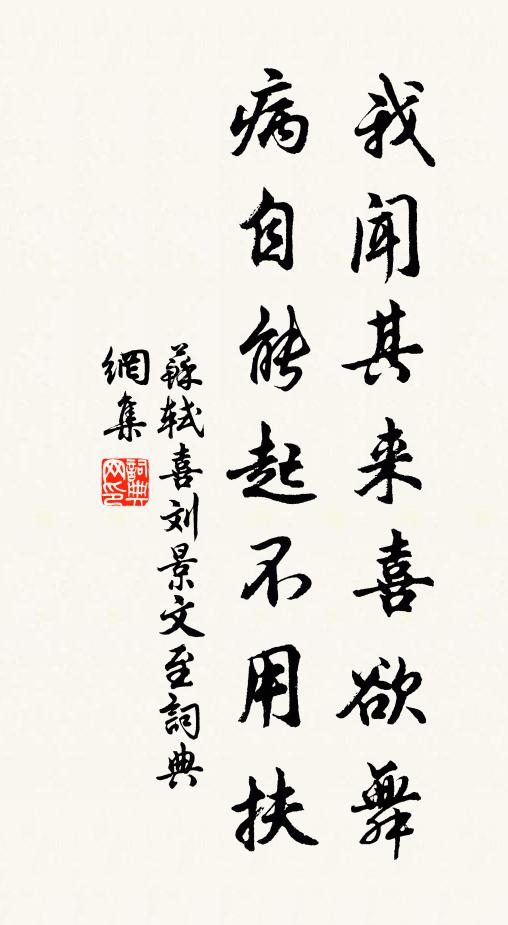 我闻其来喜欲舞
病自能起不用扶
蘇軾喜刘景文至詞典
網集
詞典网印